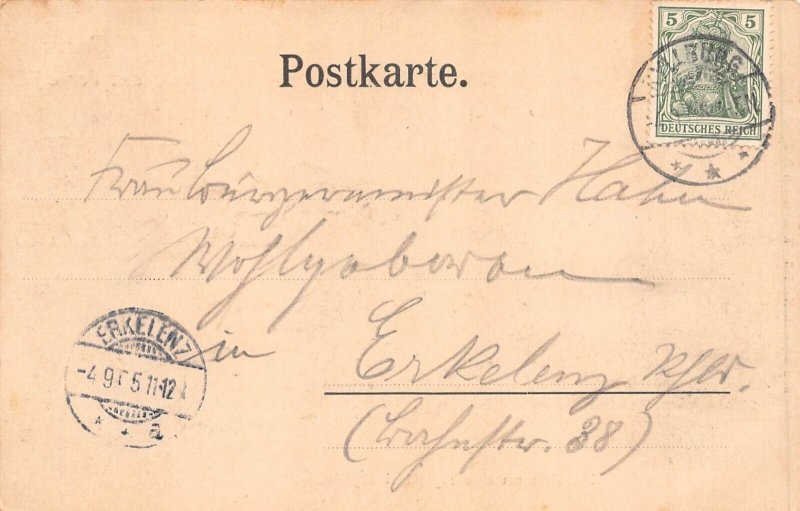 5 5
DEUTSCHES REICH
KYLLBURG
Postkarte.
Frau Bürgermeister Hahn
Wohlgeboren
in Erkelenz Rhld.
(Bahnstr. 38)
ERKELENZ
-4.9.05.11-12
* * a